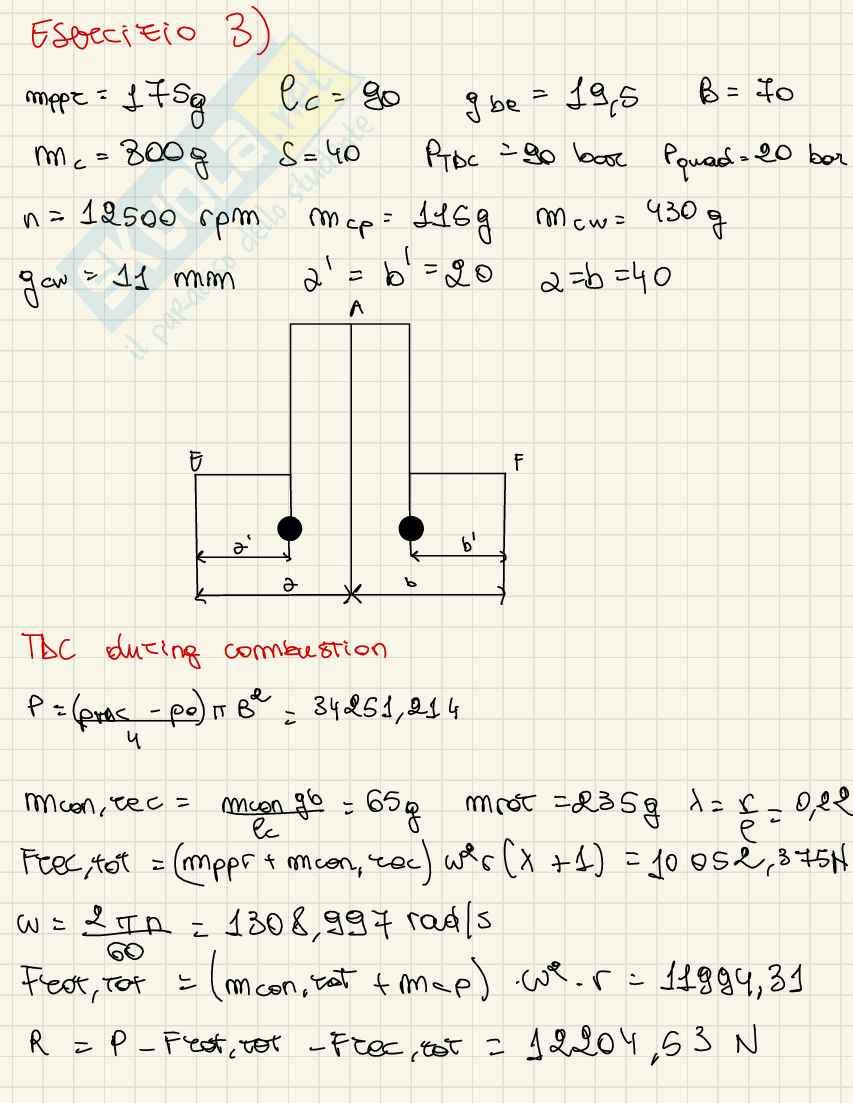 Esercizio 3)
mppr = 175g lc = 90 gbe = 19,5 B = 70
mc = 300g S = 40 PTDC = 90 bar Pquad = 20 bar
n = 12500 rpm mcp = 116g mcw = 430 g
gcw = 11 mm a' = b' = 20 a = b = 40
A
E F
a' b'
a b
TDC during combustion
P = (pTDC - po)/4 π B² = 34251,214
mcon,rec = mcon gb/lc = 65g mrot = 235g λ = r/l = 0,22
Frec,tot = (mppr + mcon,rec) ω²r (λ + 1) = 10 052,375N
ω = 2πn/60 = 1308,997 rad/s
Frot,tot = (mcon,rot + mcp) · ω² · r = 11994,31
R = P - Frot,tot - Frec,tot = 12204,53 N
SKUOLA.net
il paradiso dello studente